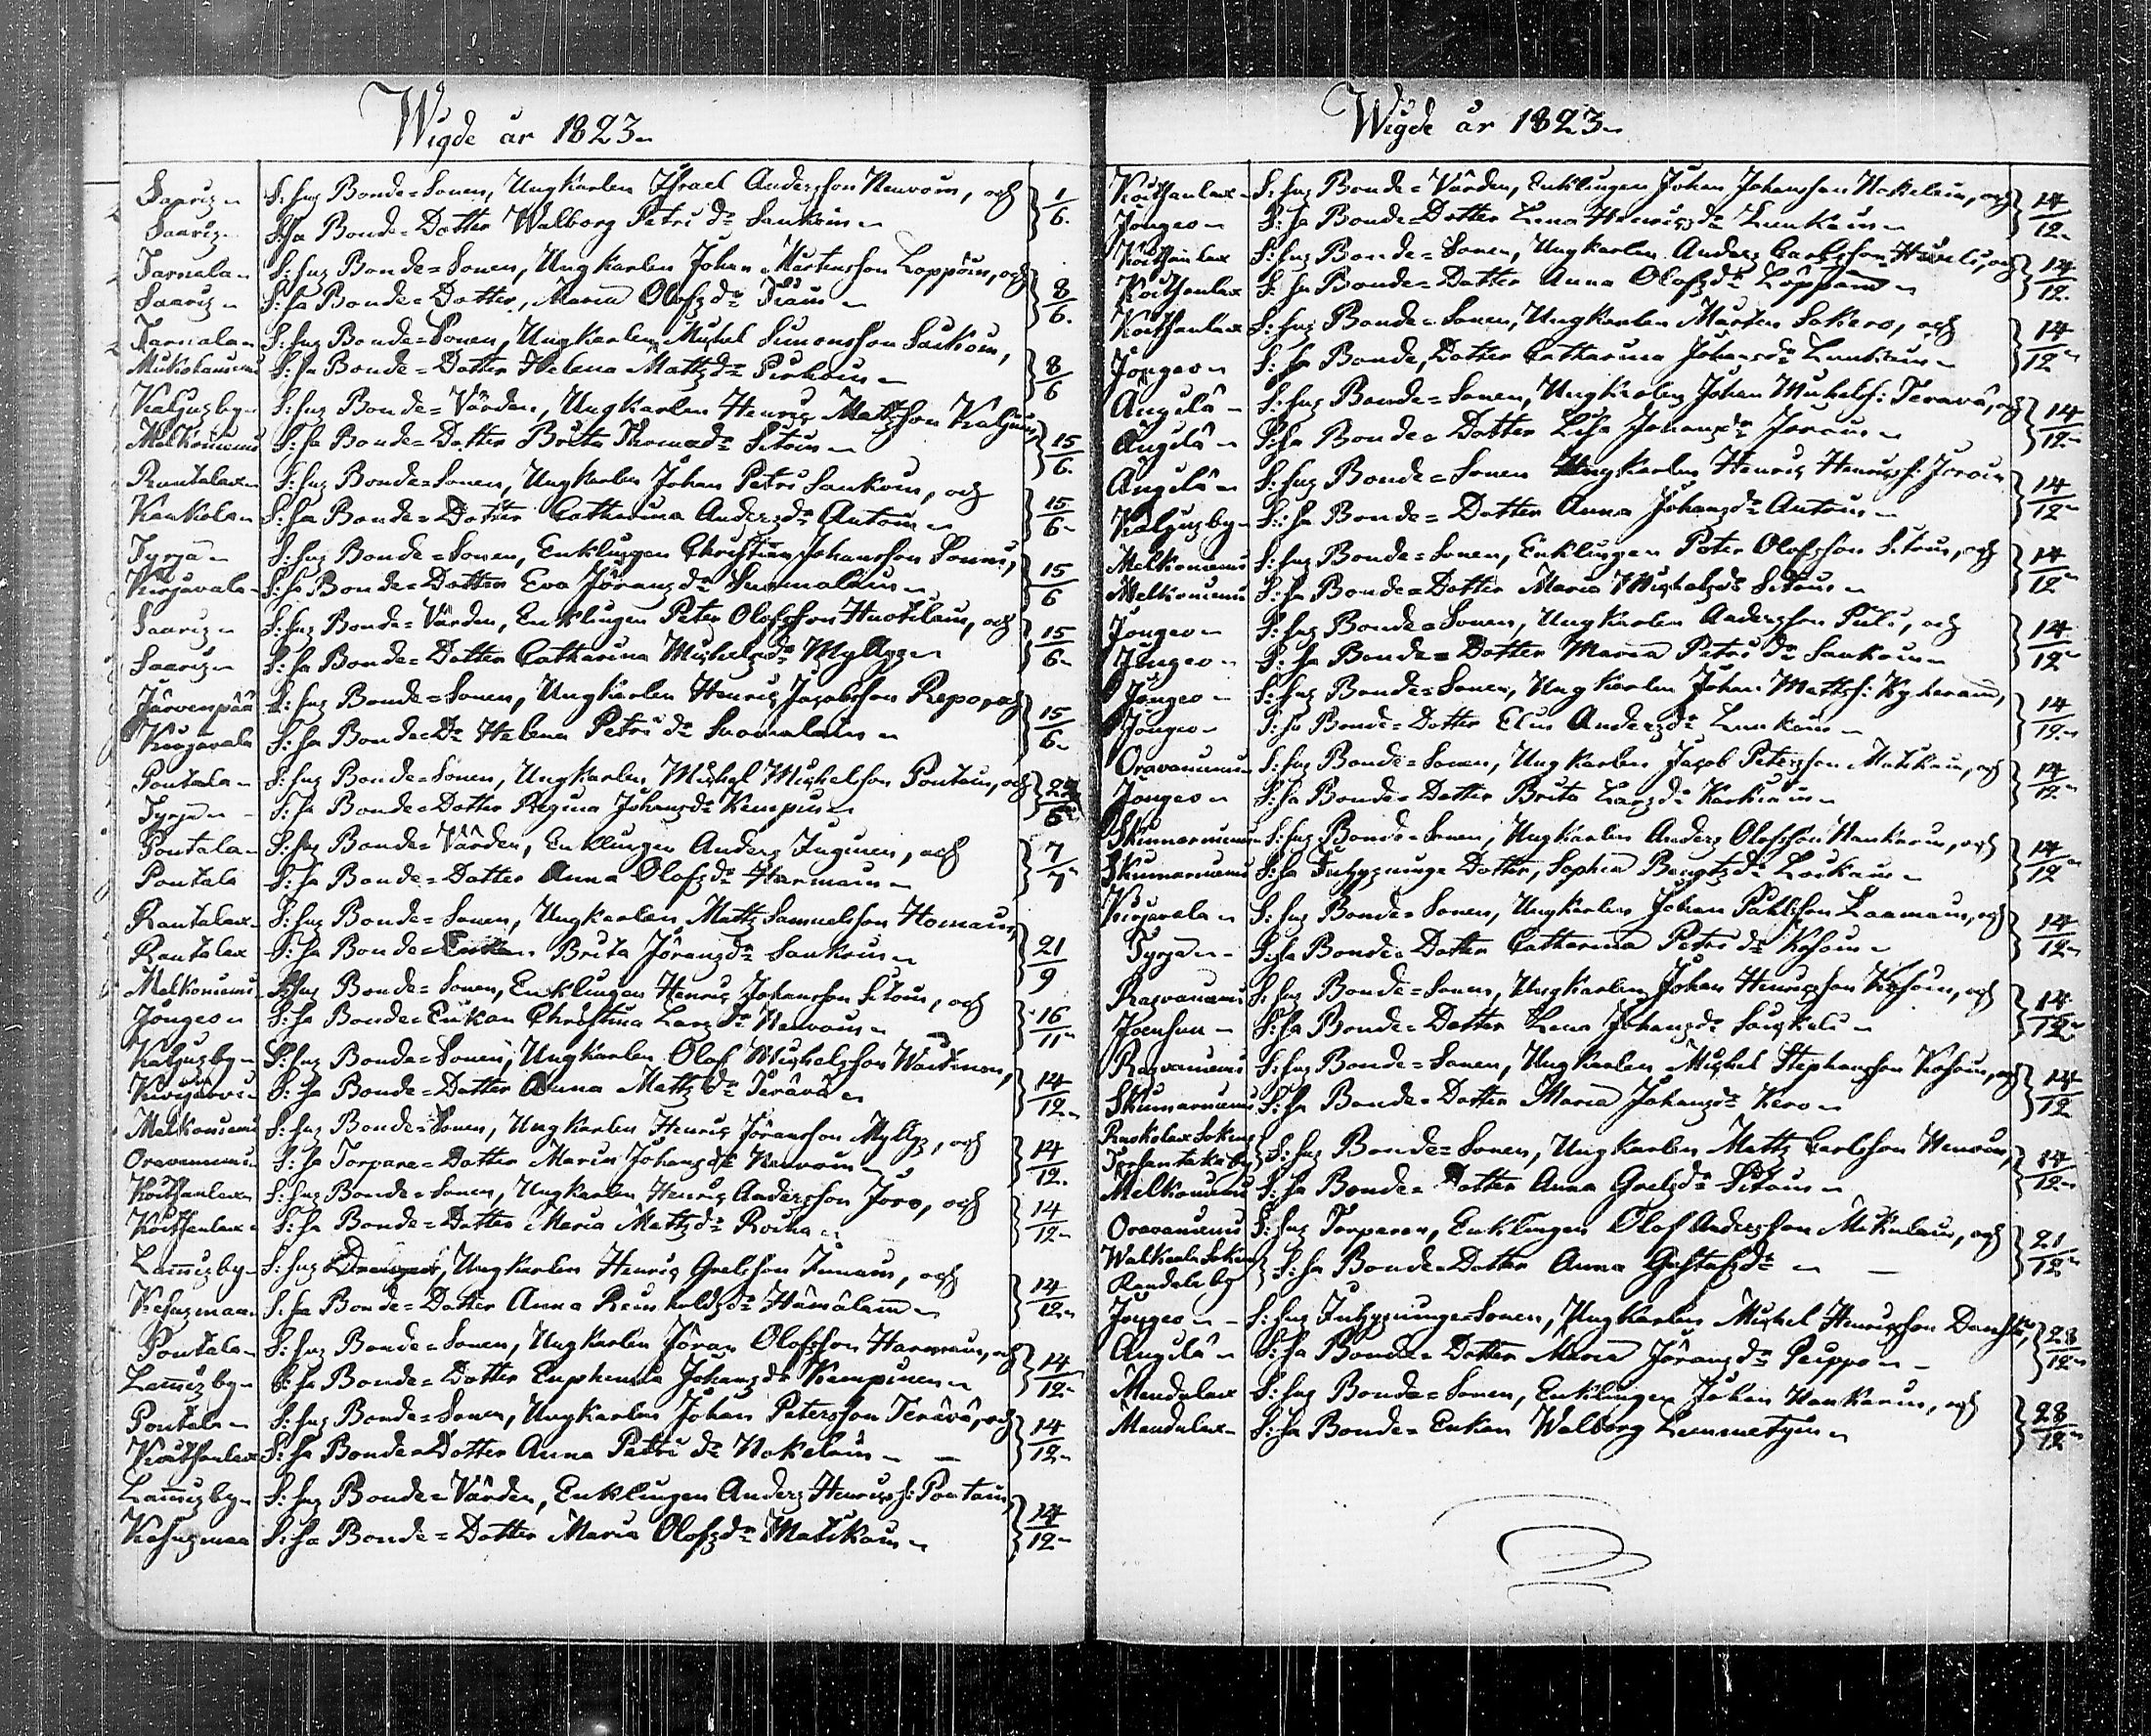 Wigde år 1823
Saariz S:hus Bonde=Sonen, Ungkarlen Israel Andersson Neuvoin, och 1/6.
Saariz S:ha Bonde=Dotter Walborg Petri dr Sankoin
Tarnala S:hus Bonde=Sonen, Ungkarlen Johan Mårtensson Loppoin, och 8/6.
Saariz S:ha Bonde=Dotter, Maria Olofzdr
Tarnala S:hus Bonde=Sonen, Ungkarlen Michel Simonsson 8/6
S:ha Bonde=Dotter Helena Mattzdr
Kaljuzby S:hus Bonde=Värden, Ungkarlen Henric Mattsson 15/6.
Melkoniemi S:ha Bonde=Dotter Brita Thomasdr Sitoin
Rautalax S:hus Bonde=Sonen, Ungkarlen Johan Petri Sankoin, och 15/6
Kankola S:ha Bonde=Dotter Catharina Anderzdr Antoin
Tyrjä S:hus Bonde=Sonen, Enklingen Christian Johansson 15/6
Kirjavala S:ha Bonde=Dotter Eva Jöranzdr Suomalain
Saariz S:hus Bonde=Värden, Enklingen Peter Olofsson Huotilain, och 15/6
Saariz S:ha Bonde=Dotter Catharina Michelzdr Myllyz
Järvenpää S:hus Bonde=Sonen, Ungkarlen Henric Jacobsson Repo, och 15/6
Kirjavala S:ha Bonde Dr Helena Petri dr Suomalain
Pontala S:hus Bonde=Sonen, Ungkarlen Michel Michelson Pontain, och
Tyrjä S:ha Bonde=Dotter Regina Johanzdr Kempin
Pontala S:hus Bonde=Värden, Enklingen Anders, och 7/7
Pontala S:ha Bonde=Dotter Anna Olofzdr Harmain
Rautalax S:hus Bonde=Sonen, Ungkarlen Mattz Samuelsson Homain, 21/9
Rautalax S:ha Bonde=Enkan Brita Jöranzdr Sankoin
Melkoniemi S:hus Bonde=Sonen, Enklingen Henric Johansson Sitoin, och 16/11
Jongeo S:ha Bonde=Enkan Christina Larzdr Neuvoin
Kaljuzby S:hus Bonde=Sonen, Ungkarlen Olof Michelsson 14/12
Kivijärvi S:ha Bonde=Dotter Anna Mattzdr Terävä
Melkoniemi S:hus Bonde=Sonen, Ungkarlen Henric Jöransson Myllyz, och 14/12.
Oravaniemi S:ha Torpare=Dotter Maria Johanzdr Neuvoin
Koitsanlax S:hus Bonde=Sonen, Ungkarlen Henric Andersson Joro, och 14/12
Koitsanlax S:ha Bonde=Dotter Maria Mattzdr Rocka
Lamizby S:hus Drengen, Ungkarlen Henric Grelsson, och 14/12
Kesuzmaa S:ha Bonde=Dotter Anna Reinholdzdr Hämäläin
Pontala S:hus Bonde=Sonen, Ungkarlen Jöran Olofsson Harmain, och 14/12
Lamizby S:ha Bonde=Dotter Euphemia Johanzdr Kempinen
Pontala S:hus Bonde=Sonen, Ungkarlen Johan Petersson Terävä, och 14/12
Koitsanlax S:ha Bonde=Dotter Anna Petri dr Nokelain
Lamizby S:hus Bonde=Värden, Enklingen Anders Henricss: Pontain, 14/12
Kesuzmaa S:ha Bonde=Dotter Maria Olofzdr Matikain
Wigde år 1823
Koitsanlax S:hus Bonde=Värden, Enklingen Johan Johansson Nokelain, och 14/12
Jongeo S:ha Bonde=Dotter Lena Henriczdr Lunkain
Koitsanlax S:hus Bonde=Sonen, Ungkarlen Anders Carlsson, och 14/12.
Koitsanlax S:ha Bonde=Dotter Anna Olofzdr
Koitsanlax S:hus Bonde=Sonen, Ungkarlen Mårten, och 14/12
Jongeo S:ha Bonde, Dotter Catharina Johanzdr
Angelä S:hus Bonde=Sonen, Ungkarlen Johan Michelss: Terävä, och 14/12
Angelä S:ha Bonde=Dotter Lisa Johanzdr
Angelä S:hus Bonde=Sonen Ungkarlen Henric Henricss: 14/12
Kaljuzby S:ha Bonde=Dotter Anna Johanzdr Antoin
Melkoniemi S:hus Bonde=Sonen, Enklingen Peter Olofsson Sitoin, och 14/12
Melkoniemi S:ha Bonde=Dotter Maria Michelzdr Sitoin
Jongeo S:hus Bonde=Sonen, Ungkarlen Andersson, och 14/12
Jongeo S:ha Bonde=Dotter Maria Petri dr Sankoin
Jongeo S:hus Bonde=Sonen, Ungkarlen Johan Mattss: 14/12
Jongeo S:ha Bonde=Dotter Elin Anderzdr Lunkain
Oravaniemi S:hus Bonde=Sonen, Ungkarlen Jacob Petersson Matikain, och 14/12
Jongeo S:ha Bonde=Dotter Brita Larzdr Karhiain
Skinnarniemi S:hus Bonde=Sonen, Ungkarlen Anders Olofsson Wankarin, och 14/12
Skinnarniemi S:ha Inhyzninge Dotter, Sophia Bengtzdr
Kirjavala S:hus Bonde=Sonen, Ungkarlen Johan Påhlsson, och 14/12
Tyrjä S:ha Bonde=Dotter Catharina Petri dr Kohoin
Rasvaniemi S:hus Bonde=Sonen, Ungkarlen Johan Henricsson Kohoin, och 14/12
Joensuu S:ha Bonde=Dotter Lena Johanzdr
Rasvaniemi S:hus Bonde=Sonen, Ungkarlen Michel Stephansson Kohoin, och 14/12
Skinnarniemi S:ha Bonde=Dotter Maria Johanzdr Kero
Ruokolax Sokn
S:hus Bonde=Sonen, Ungkarlen Mattz Carlsson 14/12
Melkoniemi S:ha Bonde=Dotter Anna Grelzdr Sitoin
Oravaniemi S:hus Torparen, Enklingen Olof Andersson Mikulain, och 21/12
Walkeala Sokn
S:ha Bonde=Dotter Anna Gustafzdr
Kandala by
Jongeo S:hus Inhyzninge=Sonen, Ungkarlen Michel Henricsson 28/12
Angelä S:ha Bonde=Dotter Maria Jöranzdr Peippo
Mendulax S:hus Bonde=Sonen, Enklingen Johan Wankarin, och 28/12
Mendulax S:ha Bonde=Enkan Walborg Lemmetyin